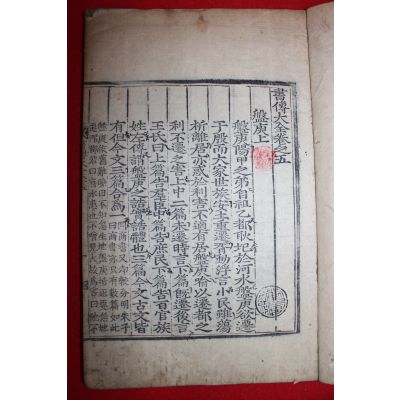 書傳大全卷之五
盤庚上
盤庚陽甲之弟自祖乙都耿圮於河水盤庚欲遷
于殷而大家世族安土重遷胥動浮言小民雖蕩
析離居亦惑於利害不適有居盤庚喻以遷都之
利不遷之害上中二篇未遷時言下篇旣遷後言
王氏曰上篇告群臣中篇告庶民下篇告百官族
姓左傳謂盤庚之誥實誥體也三篇今文古文皆
有但今文三篇合爲一
問商書又却較分明朱子
曰商書亦只有數篇如此
盤庚依舊難曉曰